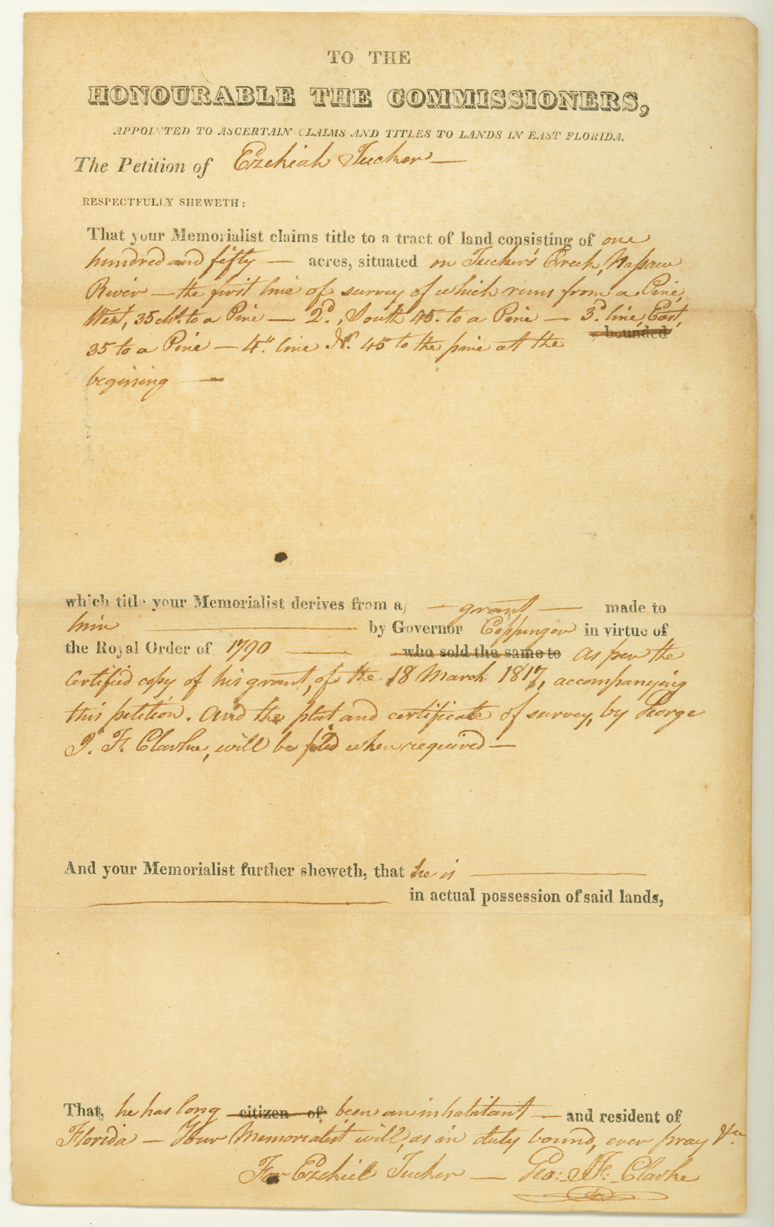 TO THE
HONOURABLE THE COMMISSIONERS,
APPOINTED TO ASCERTAIN CLAIMS AND TITLES TO LANDS IN EAST FLORIDA.
The Petition of Ezekiah Tucker —
RESPECTFULLY SHEWETH:
That your Memorialist claims title to a tract of land consisting of one
hundred and fifty — acres, situated on Tucker's Creek, Nassau
River — the first line of survey of which runs from a Pine,
West, 35 to a Pine — 2d. South 45. to a Pine — 3d. line, East,
bounded
35 to a Pine — 4th. line N. 45 to the pine at the
begining —
which title your Memorialist derives from a — grant — made to
him — by Governor Coppinger in virtue of
the Royal Order of 1790 — who sold the same to as per the
certified copy of his grant, of the 18 March 1817, accompanying
this petition. And the plat and certificate of survey, by George
J. F. Clarke, will be filed when required —
And your Memorialist further sheweth, that he is —
— in actual possession of said lands,
That, he has long citizen of been an inhabitant — and resident of
Florida — Your Memorialist will, as in duty bound, ever pray &c.
For Ezekiel Tucker — Geo: J. F. Clarke